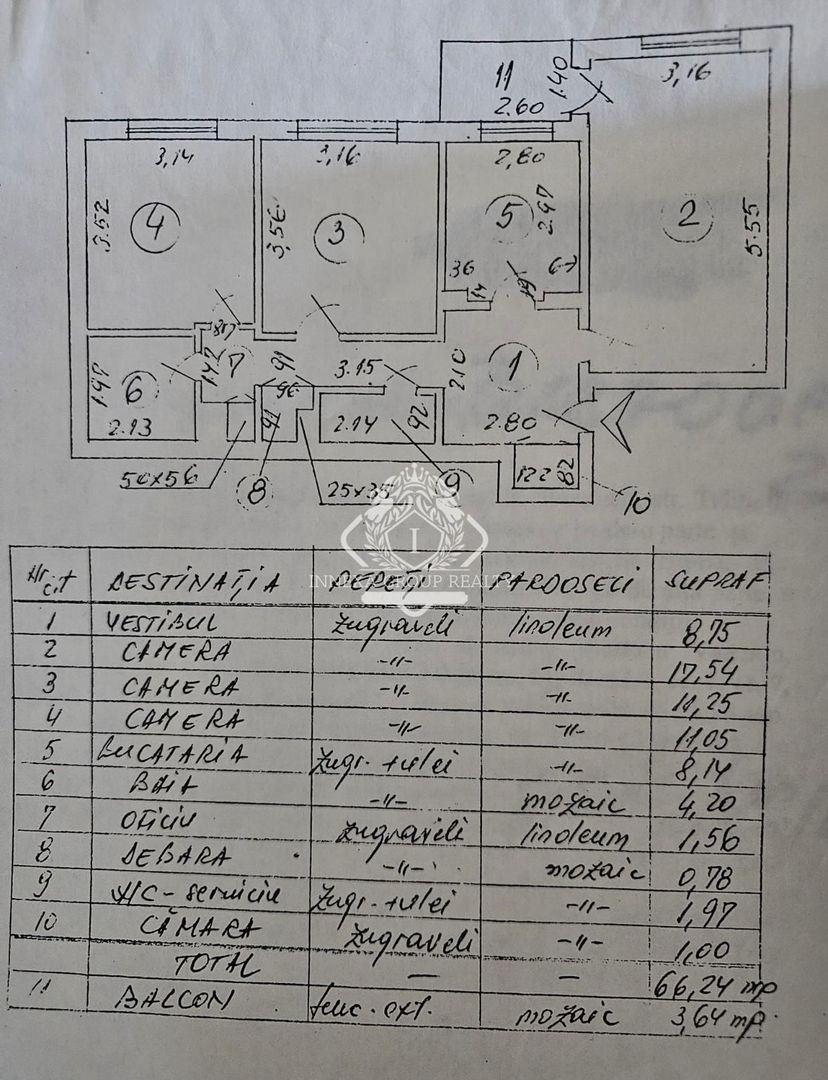 11
1.40
2.60
3,16
3,14
3,16
2,80
3.52
4
3,56
3
5
2.97
2
5.55
36
67
14
19
87
1.97
6
2.13
1.42
7
91
96
3.15
2.10
1
2.80
91
2.14
92
122
82
56x56
8
25x35
9
10
INNESA GROUP REALTY
Nr c.t DESTINAȚIA PEREȚI PARDOSELI SUPRAF
1 VESTIBUL zugraveli linoleum 8,75
2 CAMERA -"- -"- 17,54
3 CAMERA -"- -"- 11,25
4 CAMERA -"- -"- 11,05
5 BUCATARIA zugr.+ulei -"- 8,14
6 BAIA -"- mozaic 4,20
7 OFICIU zugraveli linoleum 1,56
8 DEBARA -"- mozaic 0,78
9 WC-serviciu zugr.+ulei -"- 1,97
10 CĂMARA zugraveli -"- 1,00
TOTAL — — 66,24 mp
11 BALCON tenc. ext. mozaic 3,64 mp.